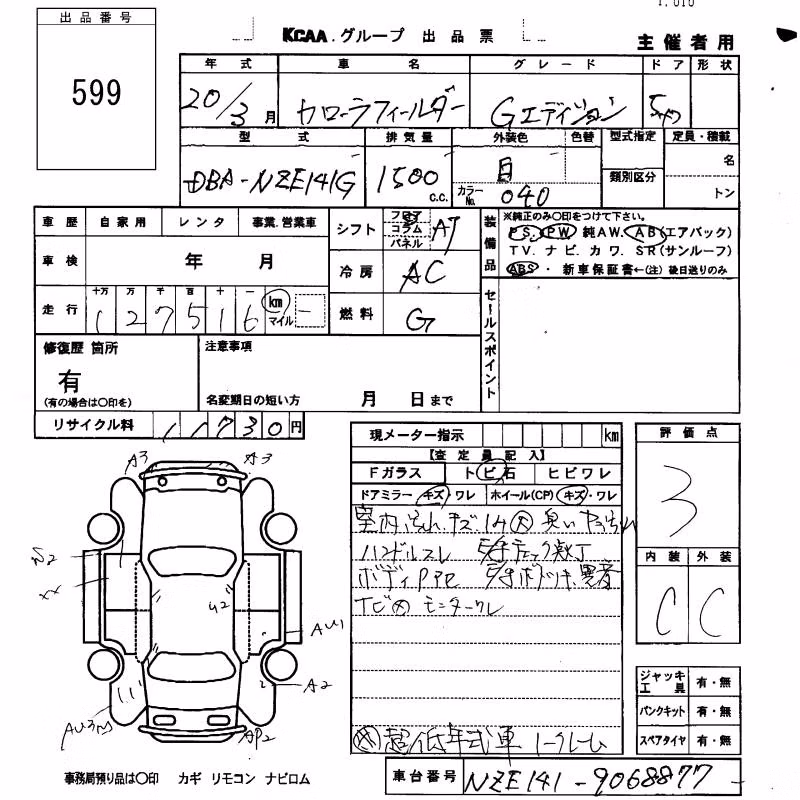 出品番号
599
KCAA.グループ 出品票
主催者用
年式 車名 グレード ドア 形状
20/3月 カローラフィールダー Gエディション
型式 排気量 外装色 色替 型式指定 定員・積載
DBA-NZE141G 1500 c.c. 白 カラーNo. 040 類別区分 名
トン
車歴 自家用 レンタ 事業.営業車
車検 年 月
走行 十万 万 千 百 十 一
1 2 7 5 1 6 km マイル
シフト フロア コラム パネル AT
冷房 AC
燃料 G
装備品 ※純正のみ○印をつけて下さい。
P.S. P.W 純A.W. A.B(エアバック)
T.V. ナビ. カワ. S.R(サンルーフ)
ABS ・ 新車保証書←(注)後日送りのみ
セールスポイント
修復歴 箇所
有
(有の場合は○印を)
注意事項
名変期日の短い方 月 日まで
リサイクル料 11730円
現メーター指示 km
【査定員記入】
Fガラス トビ石 ヒビワレ
ドアミラー キズ・ワレ ホイール(CP) キズ・ワレ
室内 キズ
ハンドルスレ
ナビ モニター
超低年式車 ノークレーム
評価点
3
内装 外装
C C
ジャッキ工具 有・無
パンクキット 有・無
スペアタイヤ 有・無
A3 A3
XX
U2
A2
AP2
事務局預り品は○印 カギ リモコン ナビロム
車台番号 NZE141-9068877